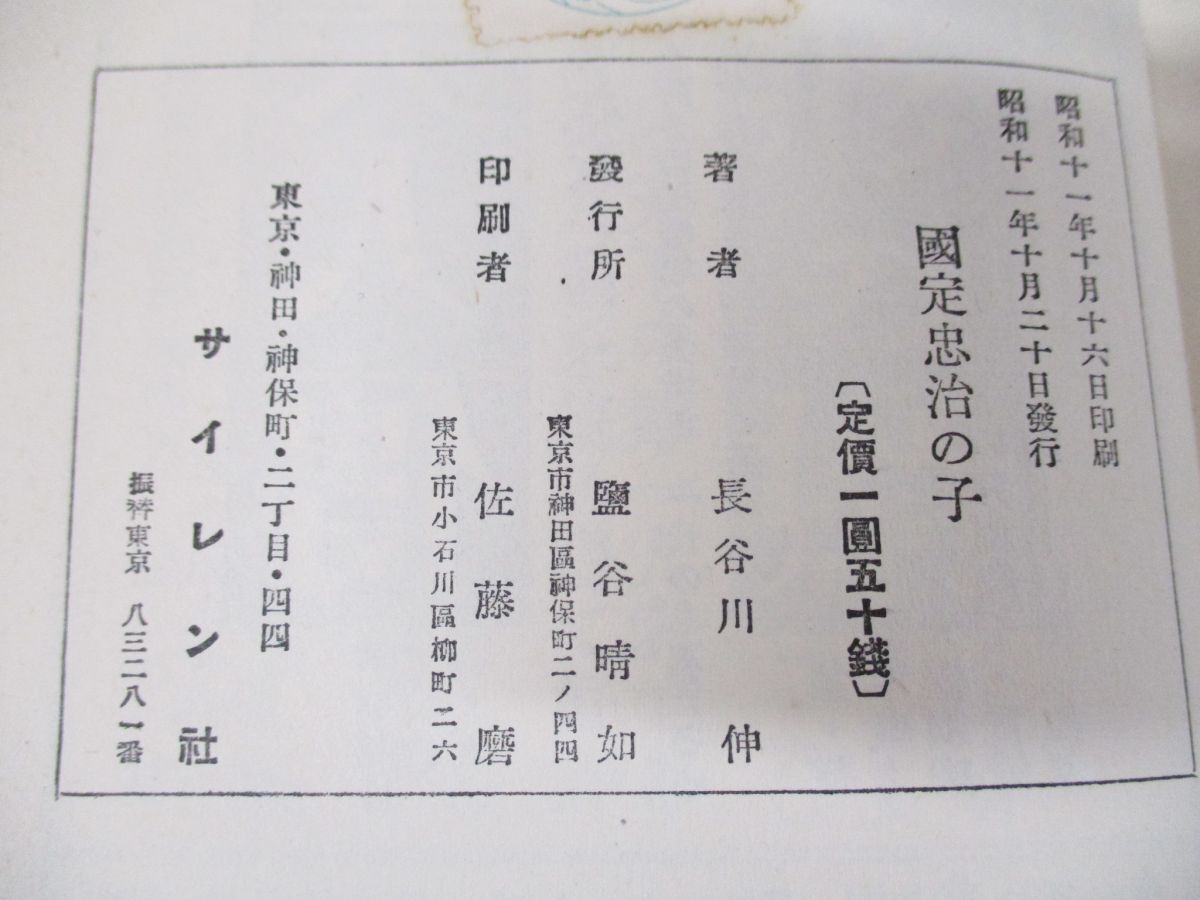 昭和十一年十月十六日印刷
昭和十一年十月二十日發行
國定忠治の子
〔定價一圓五十錢〕
著者 長谷川伸
發行所 鹽谷晴如
東京市神田區神保町二ノ四四
印刷者 佐藤磨
東京市小石川區柳町二六
東京・神田・神保町・二丁目・四四
サイレン社
振替東京 八三二八一番